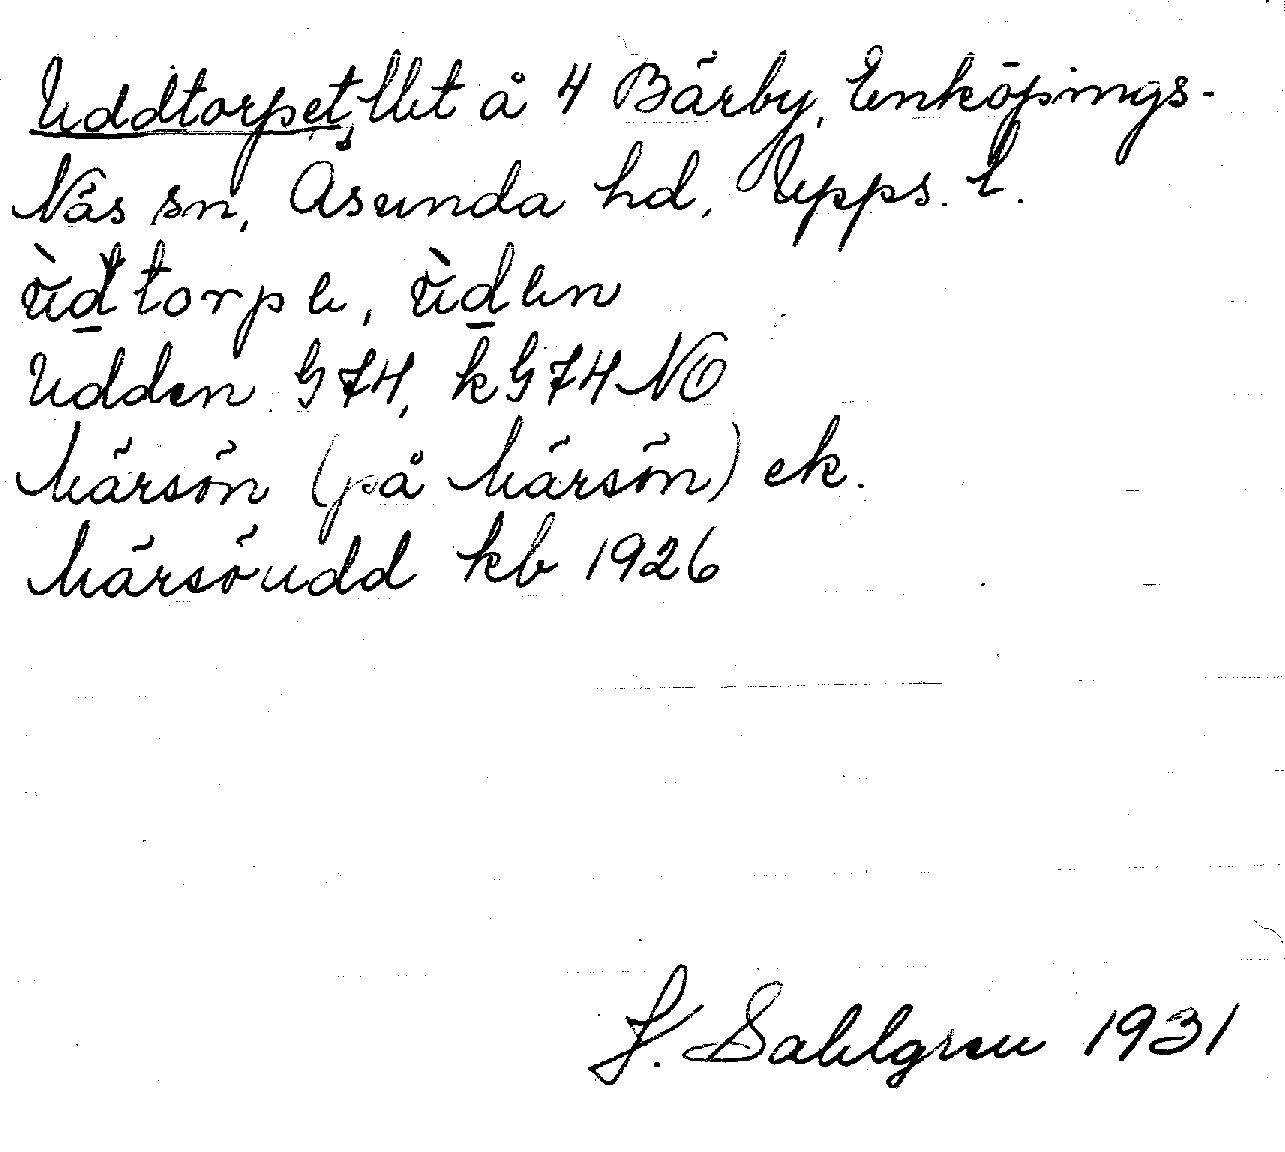 Uddtorpet, lht å 4 Bärby, Enköpings-
Näs sn, Åsunda hd, Upps. l.
ùd̲torpe, ùd̲en
Udden G74, kG74NO
Märsön (på Märsön) ek.
Märsöudd kb 1926
J. Sahlgren 1931